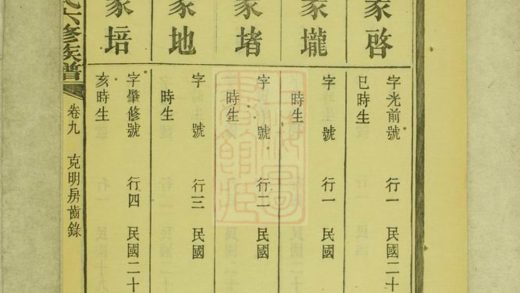 家啓
字光前號 行一 民國二十
巳時生
家壠
字 號 行一 民國
時生
家堵
字 號 行二 民國
時生
家地
字 號 行三 民國
時生
家培
字肇修號 行四 民國二十
亥時生
六修族譜 卷九 克明房齒錄